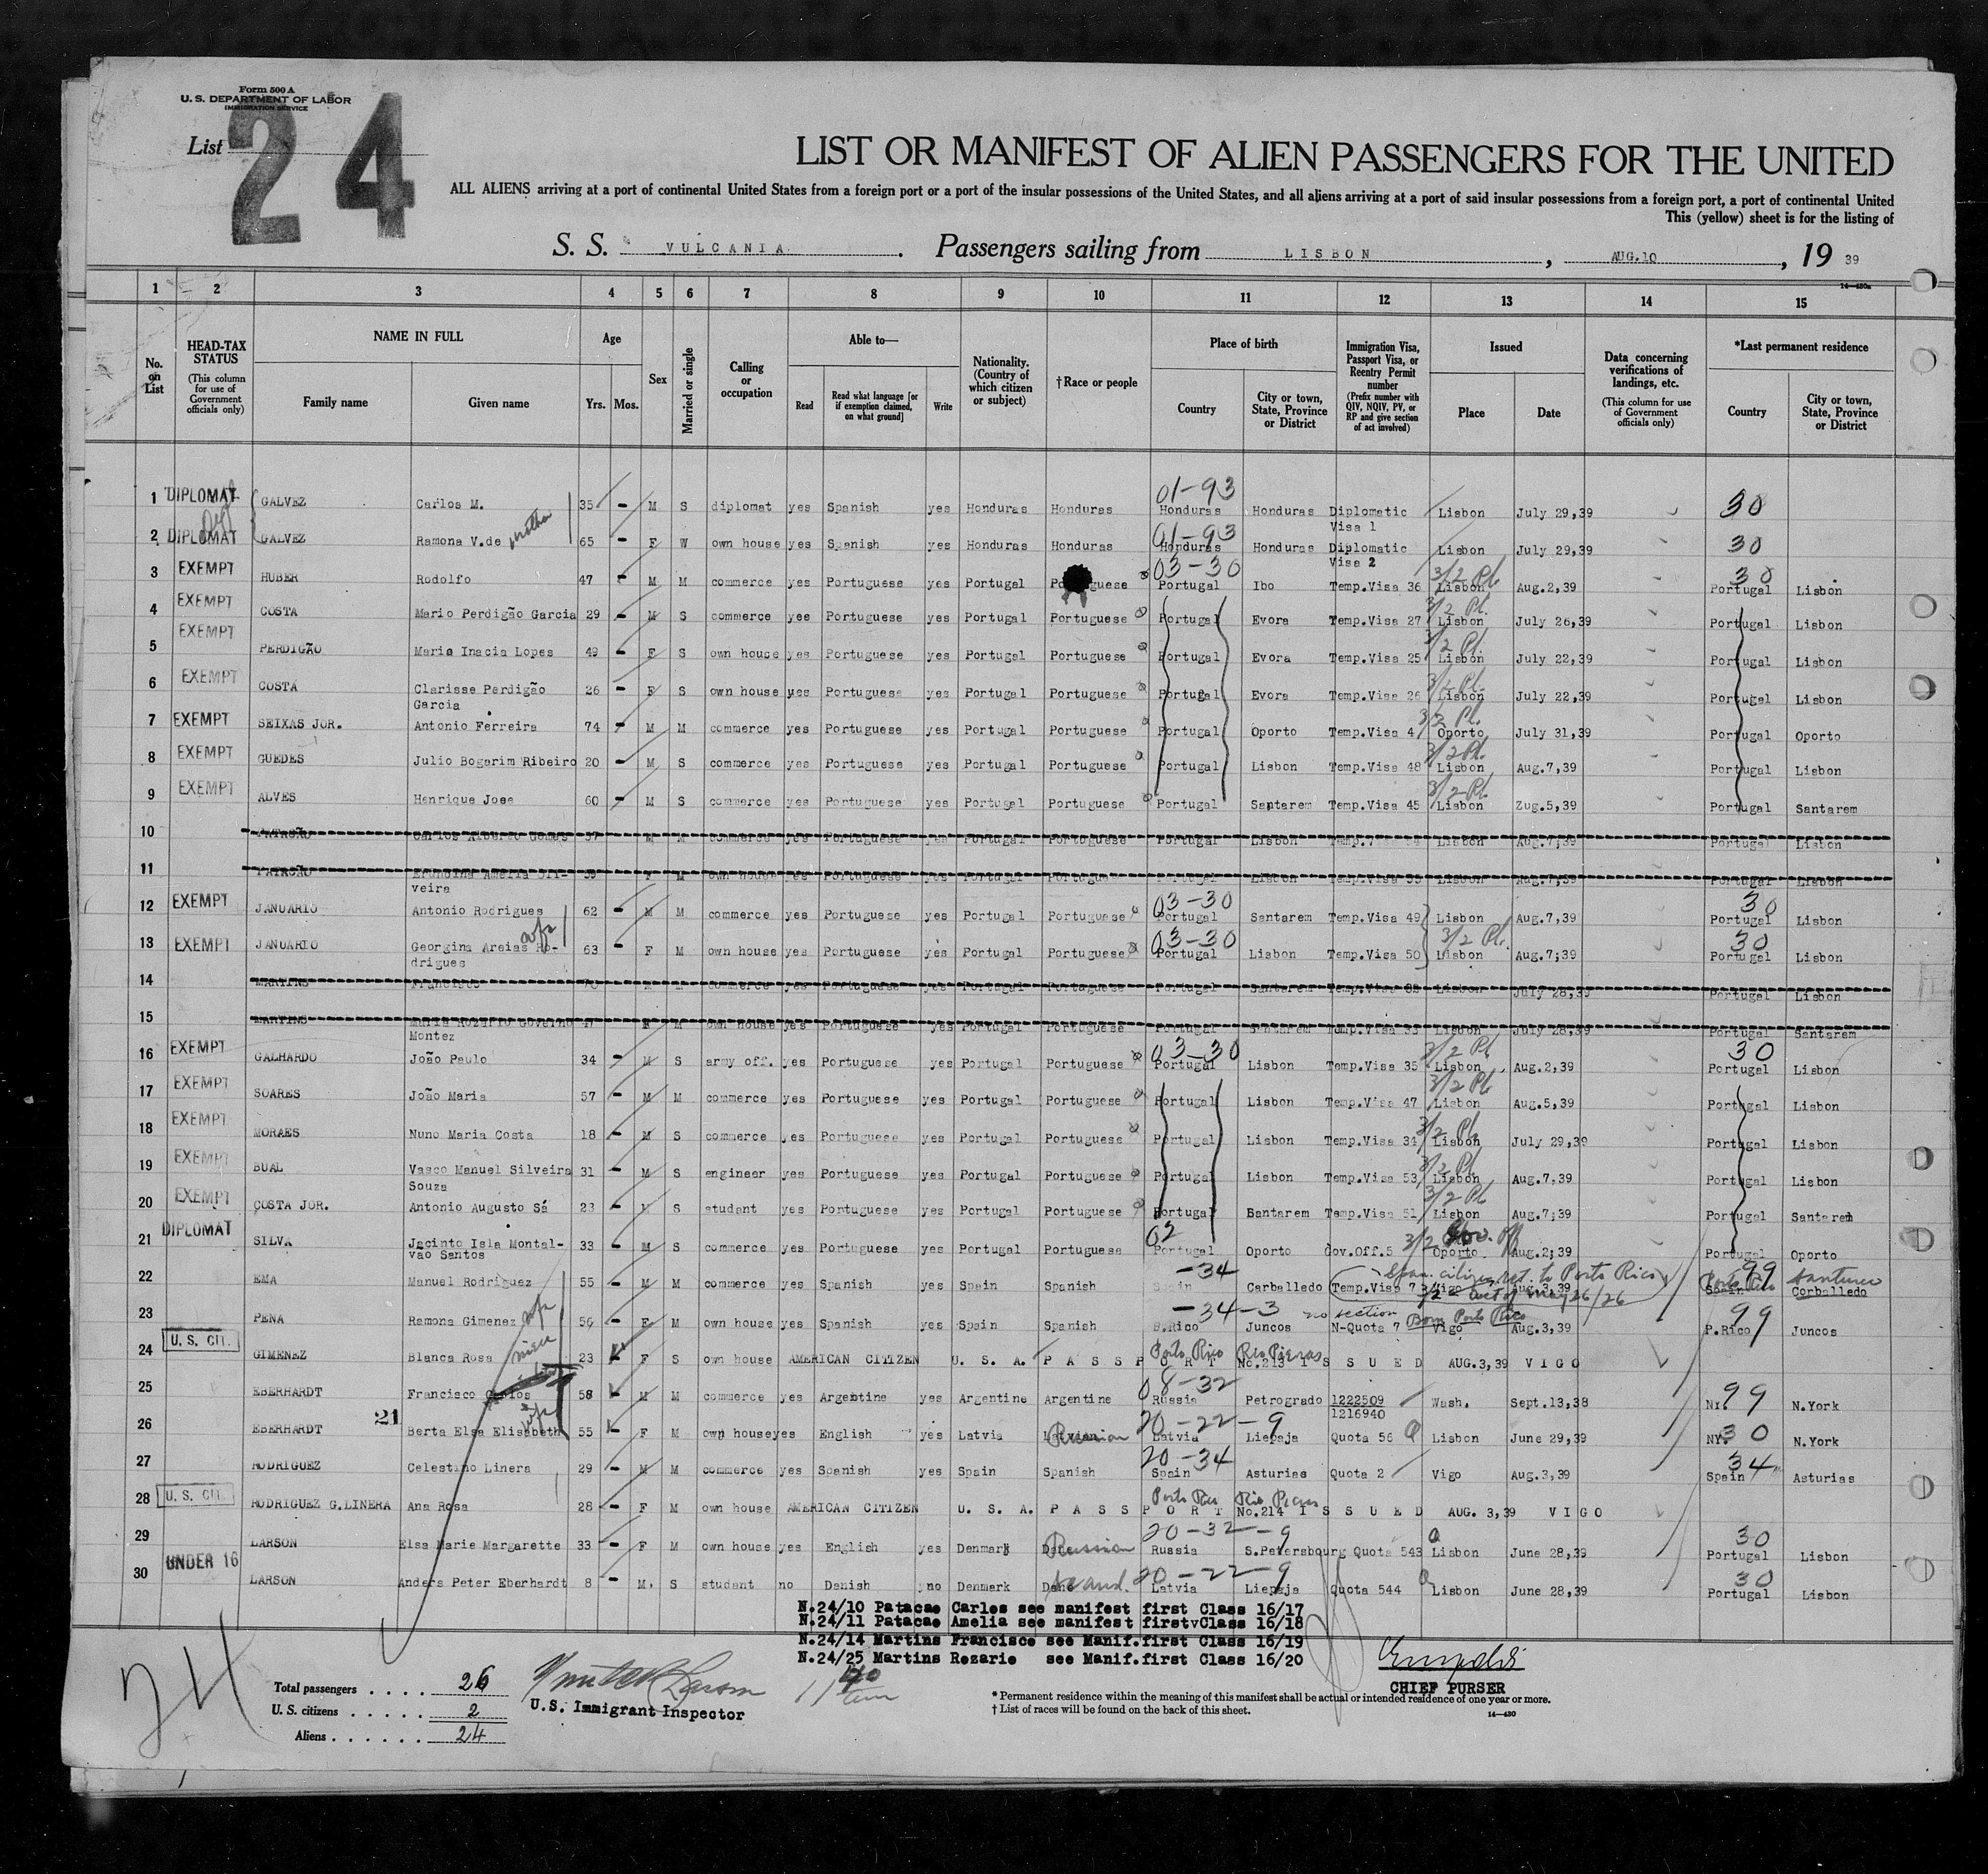 Form 500 A
U. S. DEPARTMENT OF LABOR
IMMIGRATION SERVICE
List 24
LIST OR MANIFEST OF ALIEN PASSENGERS FOR THE UNITED
ALL ALIENS arriving at a port of continental United States from a foreign port or a port of the insular possessions of the United States, and all aliens arriving at a port of said insular possessions from a foreign port, a port of continental United
This (yellow) sheet is for the listing of
S. S. VULCANIA. Passengers sailing from LISBON, AUG.10, 19 39
14—480a
1 2 3 4 5 6 7 8 9 10 11 12 13 14 15
No. on List
HEAD-TAX STATUS (This column for use of Government officials only)
NAME IN FULL Family name Given name
Age Yrs. Mos.
Sex
Married or single
Calling or occupation
Able to— Read Read what language [or if exemption claimed, on what ground] Write
Nationality. (Country of which citizen or subject)
†Race or people
Place of birth Country City or town, State, Province or District
Immigration Visa, Passport Visa, or Reentry Permit number (Prefix number with QIV, NQIV, PV, or RP and give section of act involved)
Issued Place Date
Data concerning verifications of landings, etc. (This column for use of Government officials only)
*Last permanent residence Country City or town, State, Province or District
1 DIPLOMAT GALVEZ Carlos M. 35 - M S diplomat yes Spanish yes Honduras Honduras 01-93 Honduras Honduras Diplomatic Visa 1 Lisbon July 29,39 30
2 DIPLOMAT GALVEZ Ramona V.de mother 65 - F W own house yes Spanish yes Honduras Honduras 01-93 Honduras Honduras Diplomatic Visa 2 Lisbon July 29,39 30
3 EXEMPT HUBER Rodolfo 47 - M M commerce yes Portuguese yes Portugal 03-30 Portugal Ibo Temp.Visa 36 3/2 Pl. Lisbon Aug.2,39 30 Portugal Lisbon
4 EXEMPT COSTA Mario Perdigão Garcia 29 - M S commerce yee Portuguese yes Portugal Portuguese Portugal Evora Temp.Visa 27 3/2 Pl. Lisbon July 26,39 Portugal Lisbon
5 EXEMPT PERDIGÃO Maria Inacia Lopes 49 - F S own house yes Portuguese yes Portugal Portuguese Portugal Evora Temp.Visa 25 3/2 Pl. Lisbon July 22,39 Portugal Lisbon
6 EXEMPT COSTA Clarisse Perdigão Garcia 26 - F S own house yes Portuguese yes Portugal Portuguese Portugal Evora Temp.Visa 26 3/2 Pl. Lisbon July 22,39 Portugal Lisbon
7 EXEMPT SEIXAS JOR. Antonio Ferreira 74 - M M commerce yes Portuguese yes Portugal Portuguese Portugal Oporto Temp.Visa 4 3/2 Pl. Oporto July 31,39 Portugal Oporto
8 EXEMPT GUEDES Julio Bogarim Ribeiro 20 - M S commerce yes Portuguese yes Portugal Portuguese Portugal Lisbon Temp.Visa 48 3/2 Pl. Lisbon Aug.7,39 Portugal Lisbon
9 EXEMPT ALVES Henrique Jose 60 - M S commerce yes Portuguese yes Portugal Portuguese Portugal Santarem Temp.Visa 45 3/2 Pl. Lisbon Zug.5,39 Portugal Santarem
10 PATRÃO Carlos Alberto Gomes 37 M M commerce yes Portuguese yes Portugal Portuguese Portugal Lisbon Lisbon Aug.7,39 Portugal Lisbon
11 PATRÃO Amelia Oliveira M own house yes Portuguese yes Portugal Lisbon Lisbon Aug.7,39 Portugal Lisbon
12 EXEMPT JANUARIO Antonio Rodrigues 62 - M M commerce yes Portuguese yes Portugal Portuguese 03-30 Portugal Santarem Temp.Visa 49 Lisbon Aug.7,39 30 Portugal Lisbon
13 EXEMPT JANUARIO Georgina Areias Rodrigues 63 - F M own house yes Portuguese yes Portugal Portuguese 03-30 Portugal Lisbon Temp.Visa 50 3/2 Pl. Lisbon Aug.7;39 30 Portugal Lisbon
14 MARTINS Francisco M commerce yes Portuguese yes Portugal Portuguese Portugal Santarem Lisbon July 28,39 Portugal Lisbon
15 MARTINS Maria Rozario Montez F M own house yes Portuguese yes Portugal Portuguese Portugal Santarem Temp.Visa 33 Lisbon July 28,39 Portugal Santarem
16 EXEMPT GALHARDO João Paulo 34 - M S army off. yes Portuguese yes Portugal Portuguese 03-30 Portugal Lisbon Temp.Visa 35 3/2 Pl. Lisbon Aug.2,39 30 Portugal Lisbon
17 EXEMPT SOARES João Maria 57 - M M commerce yes Portuguese yes Portugal Portuguese Portugal Lisbon Temp.Visa 47 3/2 Pl. Lisbon Aug.5,39 Portugal Lisbon
18 EXEMPT MORAES Nuno Maria Costa 18 - M S commerce yes Portuguese yes Portugal Portuguese Portugal Lisbon Temp.Visa 34 3/2 Pl. Lisbon July 29,39 Portugal Lisbon
19 EXEMPT BUAL Vasco Manuel Silveira Souza 31 - M S engineer yes Portuguese yes Portugal Portuguese Portugal Lisbon Temp.Visa 53 3/2 Pl. Lisbon Aug.7,39 Portugal Lisbon
20 EXEMPT COSTA JOR. Antonio Augusto Sá 23 - M S student yes Portuguese yes Portugal Portuguese Portugal Santarem Temp.Visa 51 3/2 Pl. Lisbon Aug.7;39 Portugal Santarem
21 DIPLOMAT SILVA Jacinto Isla Montalvão Santos 33 - M S commerce yes Portuguese yes Portugal Portuguese 02 Portugal Oporto Gov.Off.5 3/2 Gov. off Oporto Aug.2;39 Portugal Oporto
22 EMA Manuel Rodriguez 55 - M M commerce yes Spanish yes Spain Spanish -34 Spain Carballedo Temp.Visa 7 Vigo Aug.3,39 Span. citizen ret. to Porto Rico act of May 26/26 99 Porto Rico Santurce Spain Corballedo
23 PENA Ramona Gimenez w/p 56 - F M own house yes Spanish yes Spain Spanish -34-3 P.Rico Juncos no section N-Quota 7 Born Porto Rico Vigo Aug.3,39 99 P.Rico Juncos
24 U.S. CIT. GIMENEZ Blanca Rosa niece 23 - F S own house AMERICAN CITIZEN U. S. A. PASSPORT No.213 ISSUED AUG.3,39 VIGO Porto Rico Rio Piedras
25 EBERHARDT Francisco Carlos 58 - M M commerce yes Argentine yes Argentine Argentine 08-32 Russia Petrogrado 1222509 Wash. Sept.13,38 99 NY. N.York
26 21 EBERHARDT Berta Elsa Elisabeth w/p 55 - F M own house yes English yes Latvia Latvian Russian 20-22-9 Latvia Liepaja 1216940 Quota 56 Lisbon June 29,39 30 NY. N.York
27 RODRIGUEZ Celestino Linera 29 - M M commerce yes Spanish yes Spain Spanish 20-34 Spain Asturias Quota 2 Vigo Aug.3,39 34 Spain Asturias
28 U.S. CIT. RODRIGUEZ G.LINERA Ana Rosa 28 - F M own house AMERICAN CITIZEN U. S. A. PASSPORT No.214 ISSUED AUG. 3,39 VIGO Porto Rico Rio Piedras
29 LARSON Elsa Marie Margarette 33 - F M own house yes English yes Denmark Russian 20-32-9 Russia S.Petersbourg Quota 543 Lisbon June 28,39 30 Portugal Lisbon
30 UNDER 16 LARSON Anders Peter Eberhardt 8 - M. S student no Danish no Denmark Dane Scand. 20-22-9 Latvia Liepaja Quota 544 Lisbon June 28,39 30 Portugal Lisbon
N.24/10 Patacae Carles see manifest first Class 16/17
N.24/11 Patacae Amelia see manifest firstvClass 16/18
N.24/14 Martins Francisce see Manif.first Class 16/19
N.24/25 Martins Rezarie see Manif.first Class 16/20
24
Total passengers . . . . 26
U. S. citizens . . . . . 2
Aliens . . . . . . 24
U.S. Immigrant Inspector
CHIEF PURSER
* Permanent residence within the meaning of this manifest shall be actual or intended residence of one year or more.
† List of races will be found on the back of this sheet.
14—480